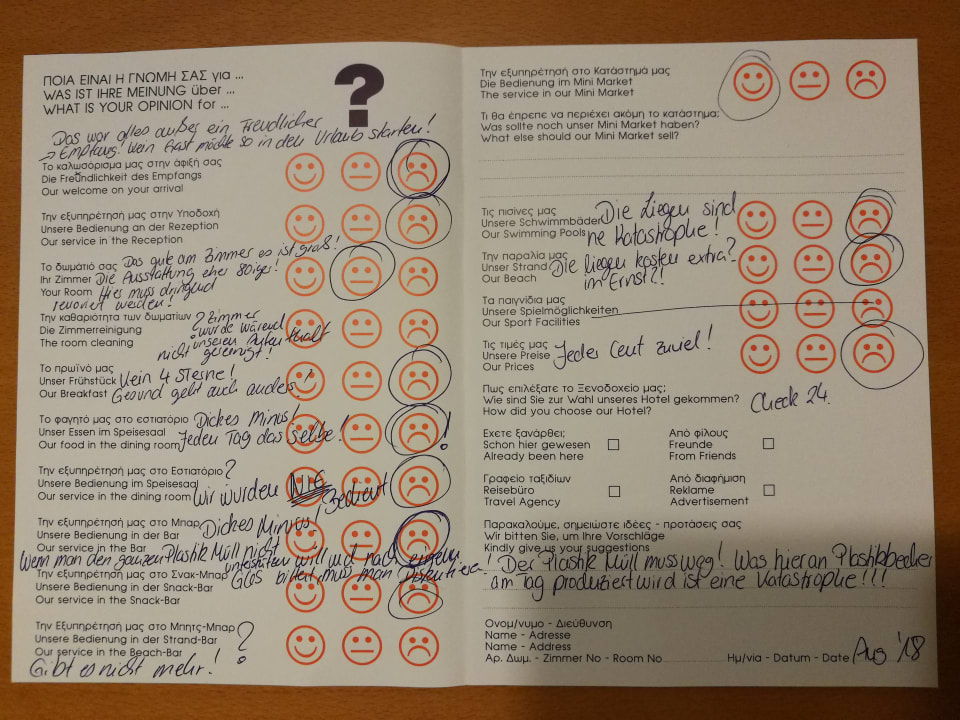 ΠΟΙΑ ΕΙΝΑΙ Η ΓΝΩΜΗ ΣΑΣ για ...
WAS IST IHRE MEINUNG über ...
WHAT IS YOUR OPINION for ...
?
Das war alles außer ein freundlicher
→ Empfang! Kein Gast möchte so in den Urlaub starten!
Το καλωσόρισμα μας στην άφιξή σας
Die Freundlichkeit des Empfangs
Our welcome on your arrival
Την εξυπηρέτησή μας στην Υποδοχή
Unsere Bedienung an der Rezeption
Our service in the Reception
Το δωμάτιό σας Das gute am Zimmer es ist groß!
Ihr Zimmer Die Ausstattung eher 80iger!
Your Room Hier muss dringend
renoviert werden!
Την καθαριότητα των δωματίων ? Zimmer
Die Zimmerreinigung wurde wärend
The room cleaning unseren Aufenthalt
nicht gereinigt!
Το πρωϊνό μας
Unser Frühstück Kein 4 Sterne!
Our Breakfast Gesund geht auch anders!
Το φαγητό μας στο εστιατόριο Dickes Minus!
Unser Essen im Speisesaal
Our food in the dining room Jeden Tag das selbe! !
Την εξυπηρέτησή μας στο Εστιατόριο ?
Unsere Bedienung im Speisesaal
Our service in the dining room Wir wurden NIE bedient
Την εξυπηρέτησή μας στο Μπαρ Dickes Minus!
Unsere Bedienung in der Bar
Our service in the Bar
Wenn man den ganzen Plastik Müll nicht unterstüten will und nach einem
Glas bittet muss man diskutieren!
Την εξυπηρέτησή μας στο Σνακ-Μπαρ
Unsere Bedienung in der Snack-Bar
Our service in the Snack-Bar
Την Εξυπηρέτησή μας στο Μπητς-Μπαρ ?
Unsere Bedienung in der Strand-Bar
Our service in the Beach-Bar
Gibt es nicht mehr!
Την εξυπηρέτηση στο Κατάστημά μας
Die Bedienung im Mini Market
The service in our Mini Market
Τι θα έπρεπε να περιέχει ακόμη το κατάστημα;
Was sollte noch unser Mini Market haben?
What else should our Mini Market sell?
Τις πισίνες μας
Unsere Schwimmbäder Die Liegen sind
Our Swimming Pools ne Katastrophe!
Την παραλία μας
Unser Strand Die liegen kosten extra?
Our Beach im Ernst?!
Τα παιγνίδια μας
Unsere Spielmöglichkeiten
Our Sport Facilities
Τις τιμές μας
Unsere Preise Jeder Cent zuviel!
Our Prices
Πως επιλέξατε το Ξενοδοχείο μας;
Wie sind Sie zur Wahl unseres Hotel gekommen? Check 24.
How did you choose our Hotel?
Εχετε ξανάρθει;
Schon hier gewesen
Already been here
Από φίλους
Freunde
From Friends
Γραφείο ταξιδίων
Reisebüro
Travel Agency
Από διαφήμιση
Reklame
Advertisement
Παρακαλούμε, σημειώστε ιδέες - προτάσεις σας
Wir bitten Sie, um Ihre Vorschläge
Kindly give us your suggestions
Der Plastik Müll muss weg! Was hier an Plastikbecher
am Tag produziert wird ist eine Katastrophe!!!
Ονομ/νυμο - Διεύθυνση
Name - Adresse
Name - Address
Αρ. Δωμ. - Zimmer No - Room No
Ημ/νία - Datum - Date Aug '18